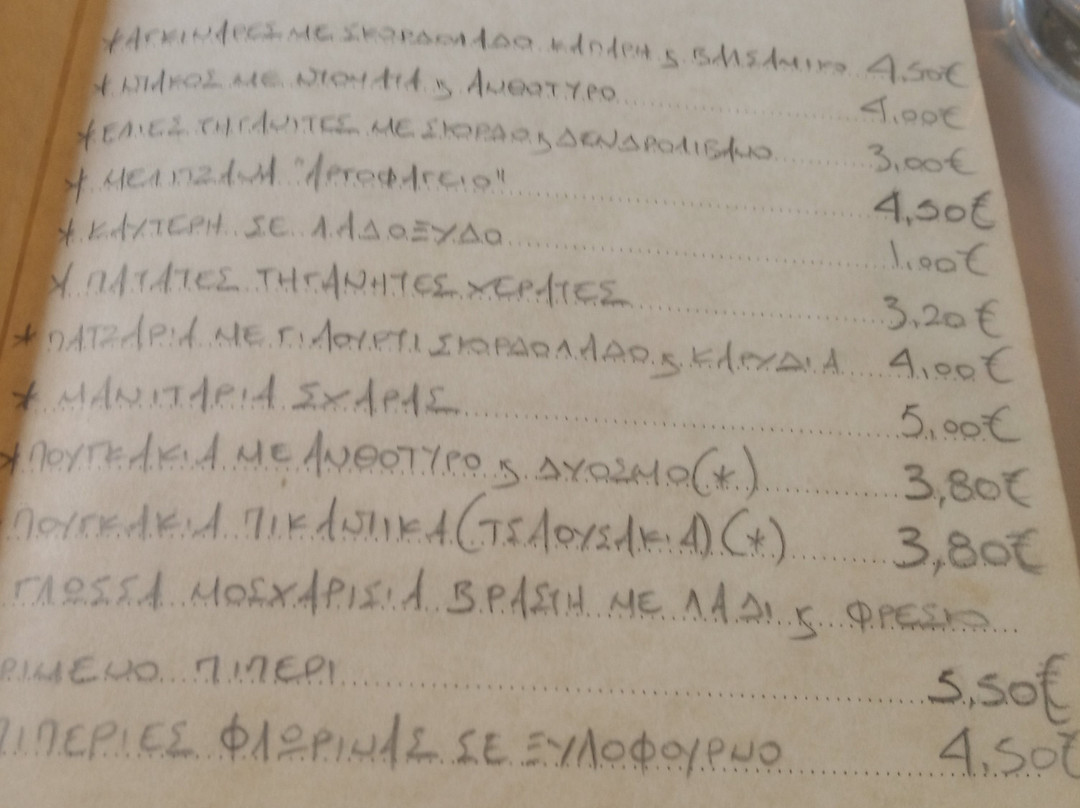 *ΑΓΚΙΝΑΡΕΣ ΜΕ ΣΚΟΡΔΟΛΑΔΟ ΚΑΠΑΡΗ & ΒΑΛΣΑΜΙΚΟ 4,50€
* ΝΤΑΚΟΣ ΜΕ ΝΤΟΜΑΤΑ & ΑΝΘΟΤΥΡΟ 4,00€
*ΕΛΙΕΣ ΤΗΓΑΝΙΤΕΣ ΜΕ ΣΚΟΡΔΟ & ΔΕΝΔΡΟΛΙΒΑΝΟ 3,00€
* ΜΕΛΙΤΖΑΝΑ "ΑΡΤΟΦΑΓΕΙΟ" 4,50€
* ΚΑΥΤΕΡΗ ΣΕ ΛΑΔΟΞΥΔΟ 1,00€
* ΠΑΤΑΤΕΣ ΤΗΓΑΝΗΤΕΣ ΧΕΡΑΤΕΣ 3,20€
* ΠΑΤΖΑΡΙΑ ΜΕ ΓΙΑΟΥΡΤΙ ΣΚΟΡΔΟΛΑΔΟ & ΚΑΡΥΔΙΑ 4,00€
* ΜΑΝΙΤΑΡΙΑ ΣΧΑΡΑΣ 5,00€
*ΠΟΥΓΚΑΚΙΑ ΜΕ ΑΝΘΟΤΥΡΟ & ΔΥΟΣΜΟ(*) 3,80€
ΠΟΥΓΚΑΚΙΑ ΠΙΚΑΝΤΙΚΑ(ΤΣΑΟΥΣΑΚΙΑ)(*) 3,80€
ΓΛΩΣΣΑ ΜΟΣΧΑΡΙΣΙΑ ΒΡΑΣΤΗ ΜΕ ΛΑΔΙ & ΦΡΕΣΚΟ
ΡΙΜΕΝΟ ΠΙΠΕΡΙ 5,50€
ΠΙΠΕΡΙΕΣ ΦΛΩΡΙΝΑΣ ΣΕ ΞΥΛΟΦΟΥΡΝΟ 4,50€